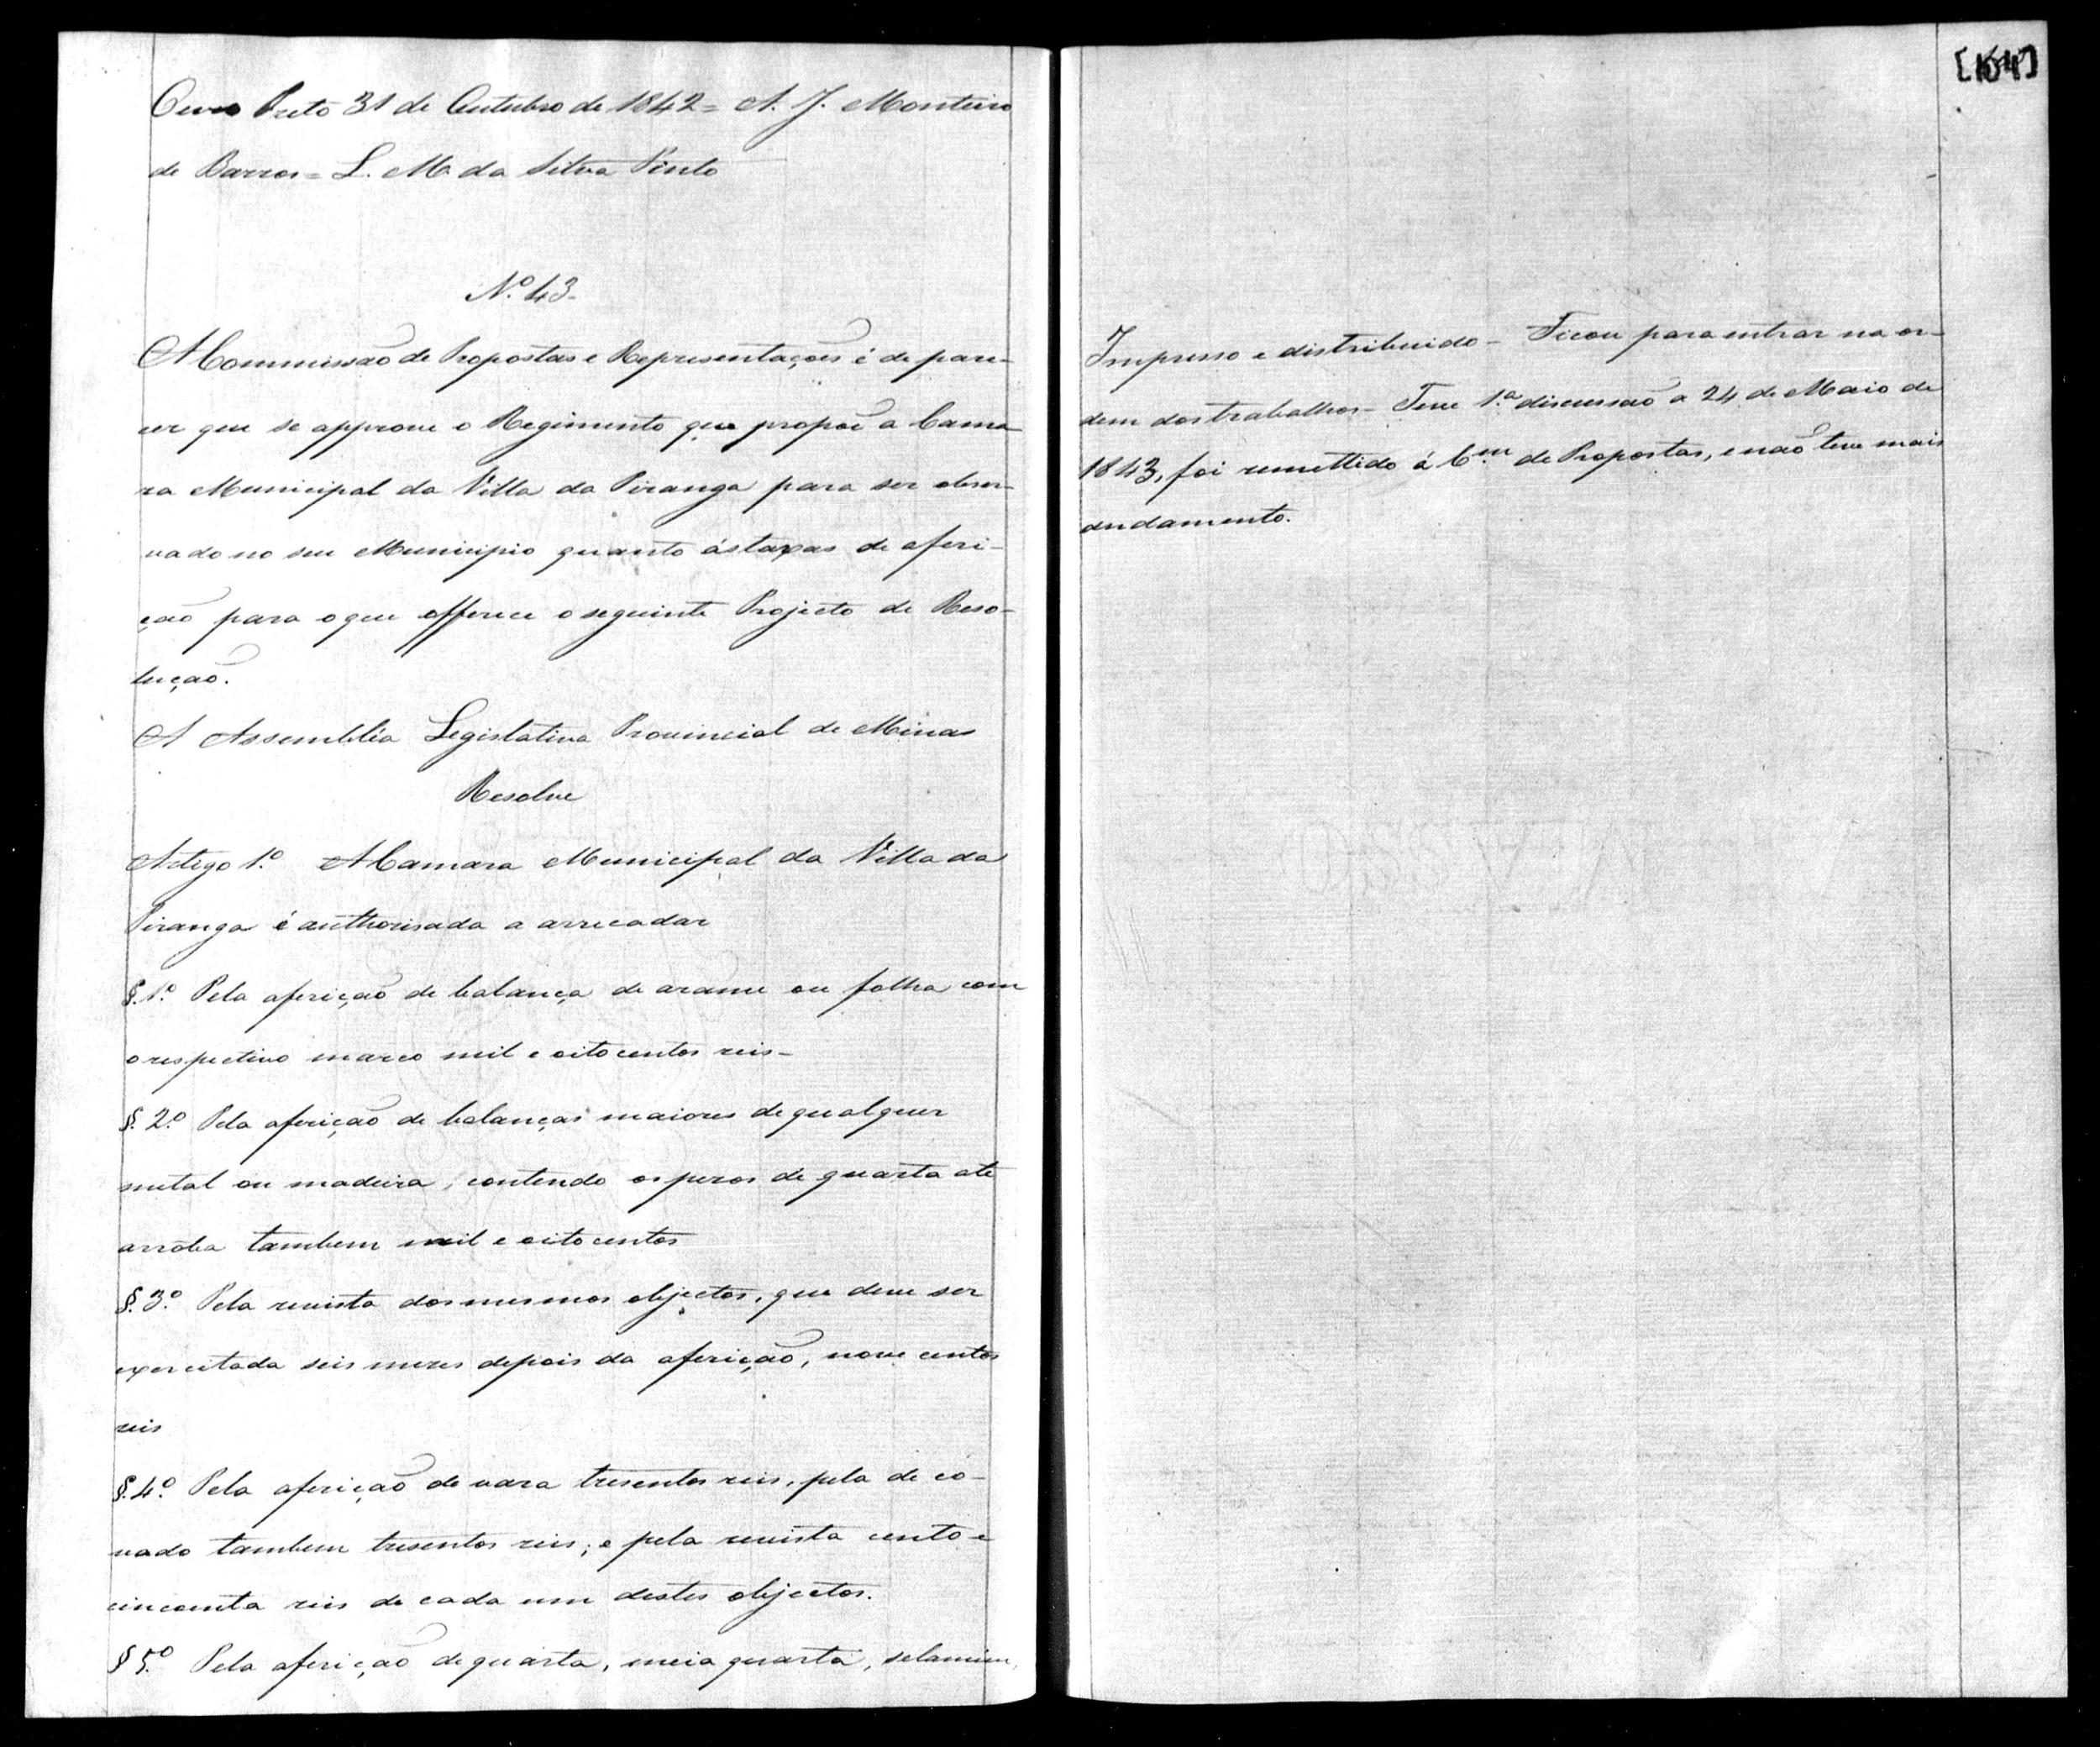 Ouro Preto 31 de Outubro de 1842 = A. J. Monteiro
de Barros = L. M. da Silva Pinto
Nº 43 -
A Commissão de Propostas e Representações é de pare-
cer que se approve o Regimento que propoê a Cama-
ra Municipal da Villa da Piranga para ser obser-
vado no seu Municipio quanto ás taxas de aferi-
ção para o que offerece o seguinte Projecto de Reso-
lução.
A Assembléa Legislativa Provincial de Minas
Resolve
Artigo 1º A Camara Municipal da Villa da
Piranga é authorisada a arrecadar
§. 1º Pela aferição de balança de arame ou folha com
o respectivo marco mil e oitocentos reis -
§. 2º Pela aferição de balanças maiores de qualquer
metal ou madeira, contendo os pezos de quarta até
arroba tambem mil e oitocentos
§. 3º Pela revista dos mesmos objectos, que deve ser
exercitada seis mezes depois da aferição, nove centos
reis
§. 4º Pela aferição de vara tresentos reis, pela de co-
vado tambem tresentos reis; e pela revista cento e
cincoenta reis de cada um destes objectos.
§ 5º Pela aferição de quarta, meia quarta, selamim,
[164]
Impresso e distribuido - Ficou para entrar na or-
dem dos trabalhos - Teve 1ª discussão a 24 de Maio de
1843, foi remettido á Cm. de Propostas, e não teve mais
andamento.